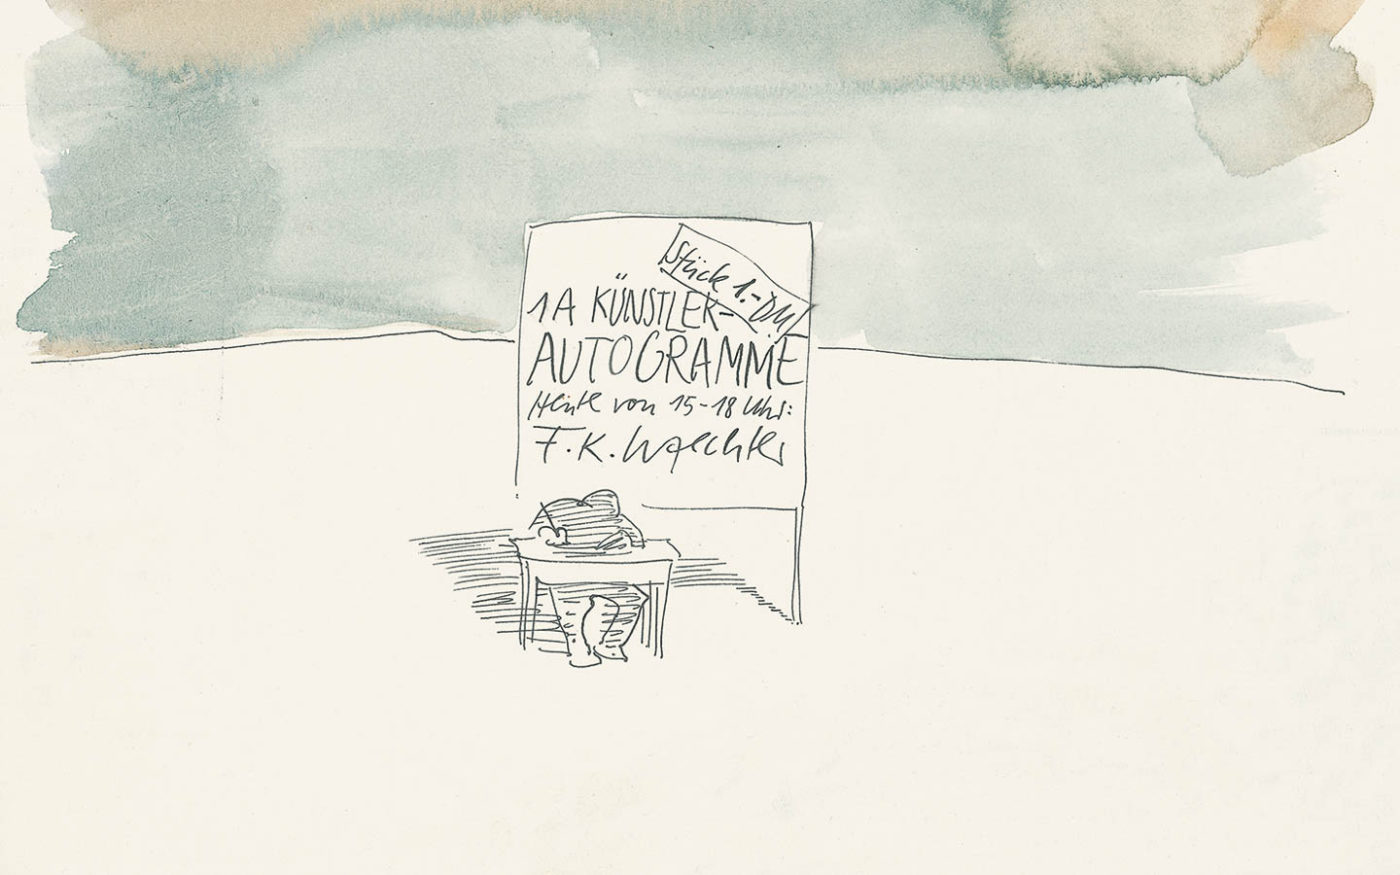 Stück 1.-DM
1A KÜNSTLER-
AUTOGRAMME
Heute von 15-18 Uhr:
F.K. Waechter